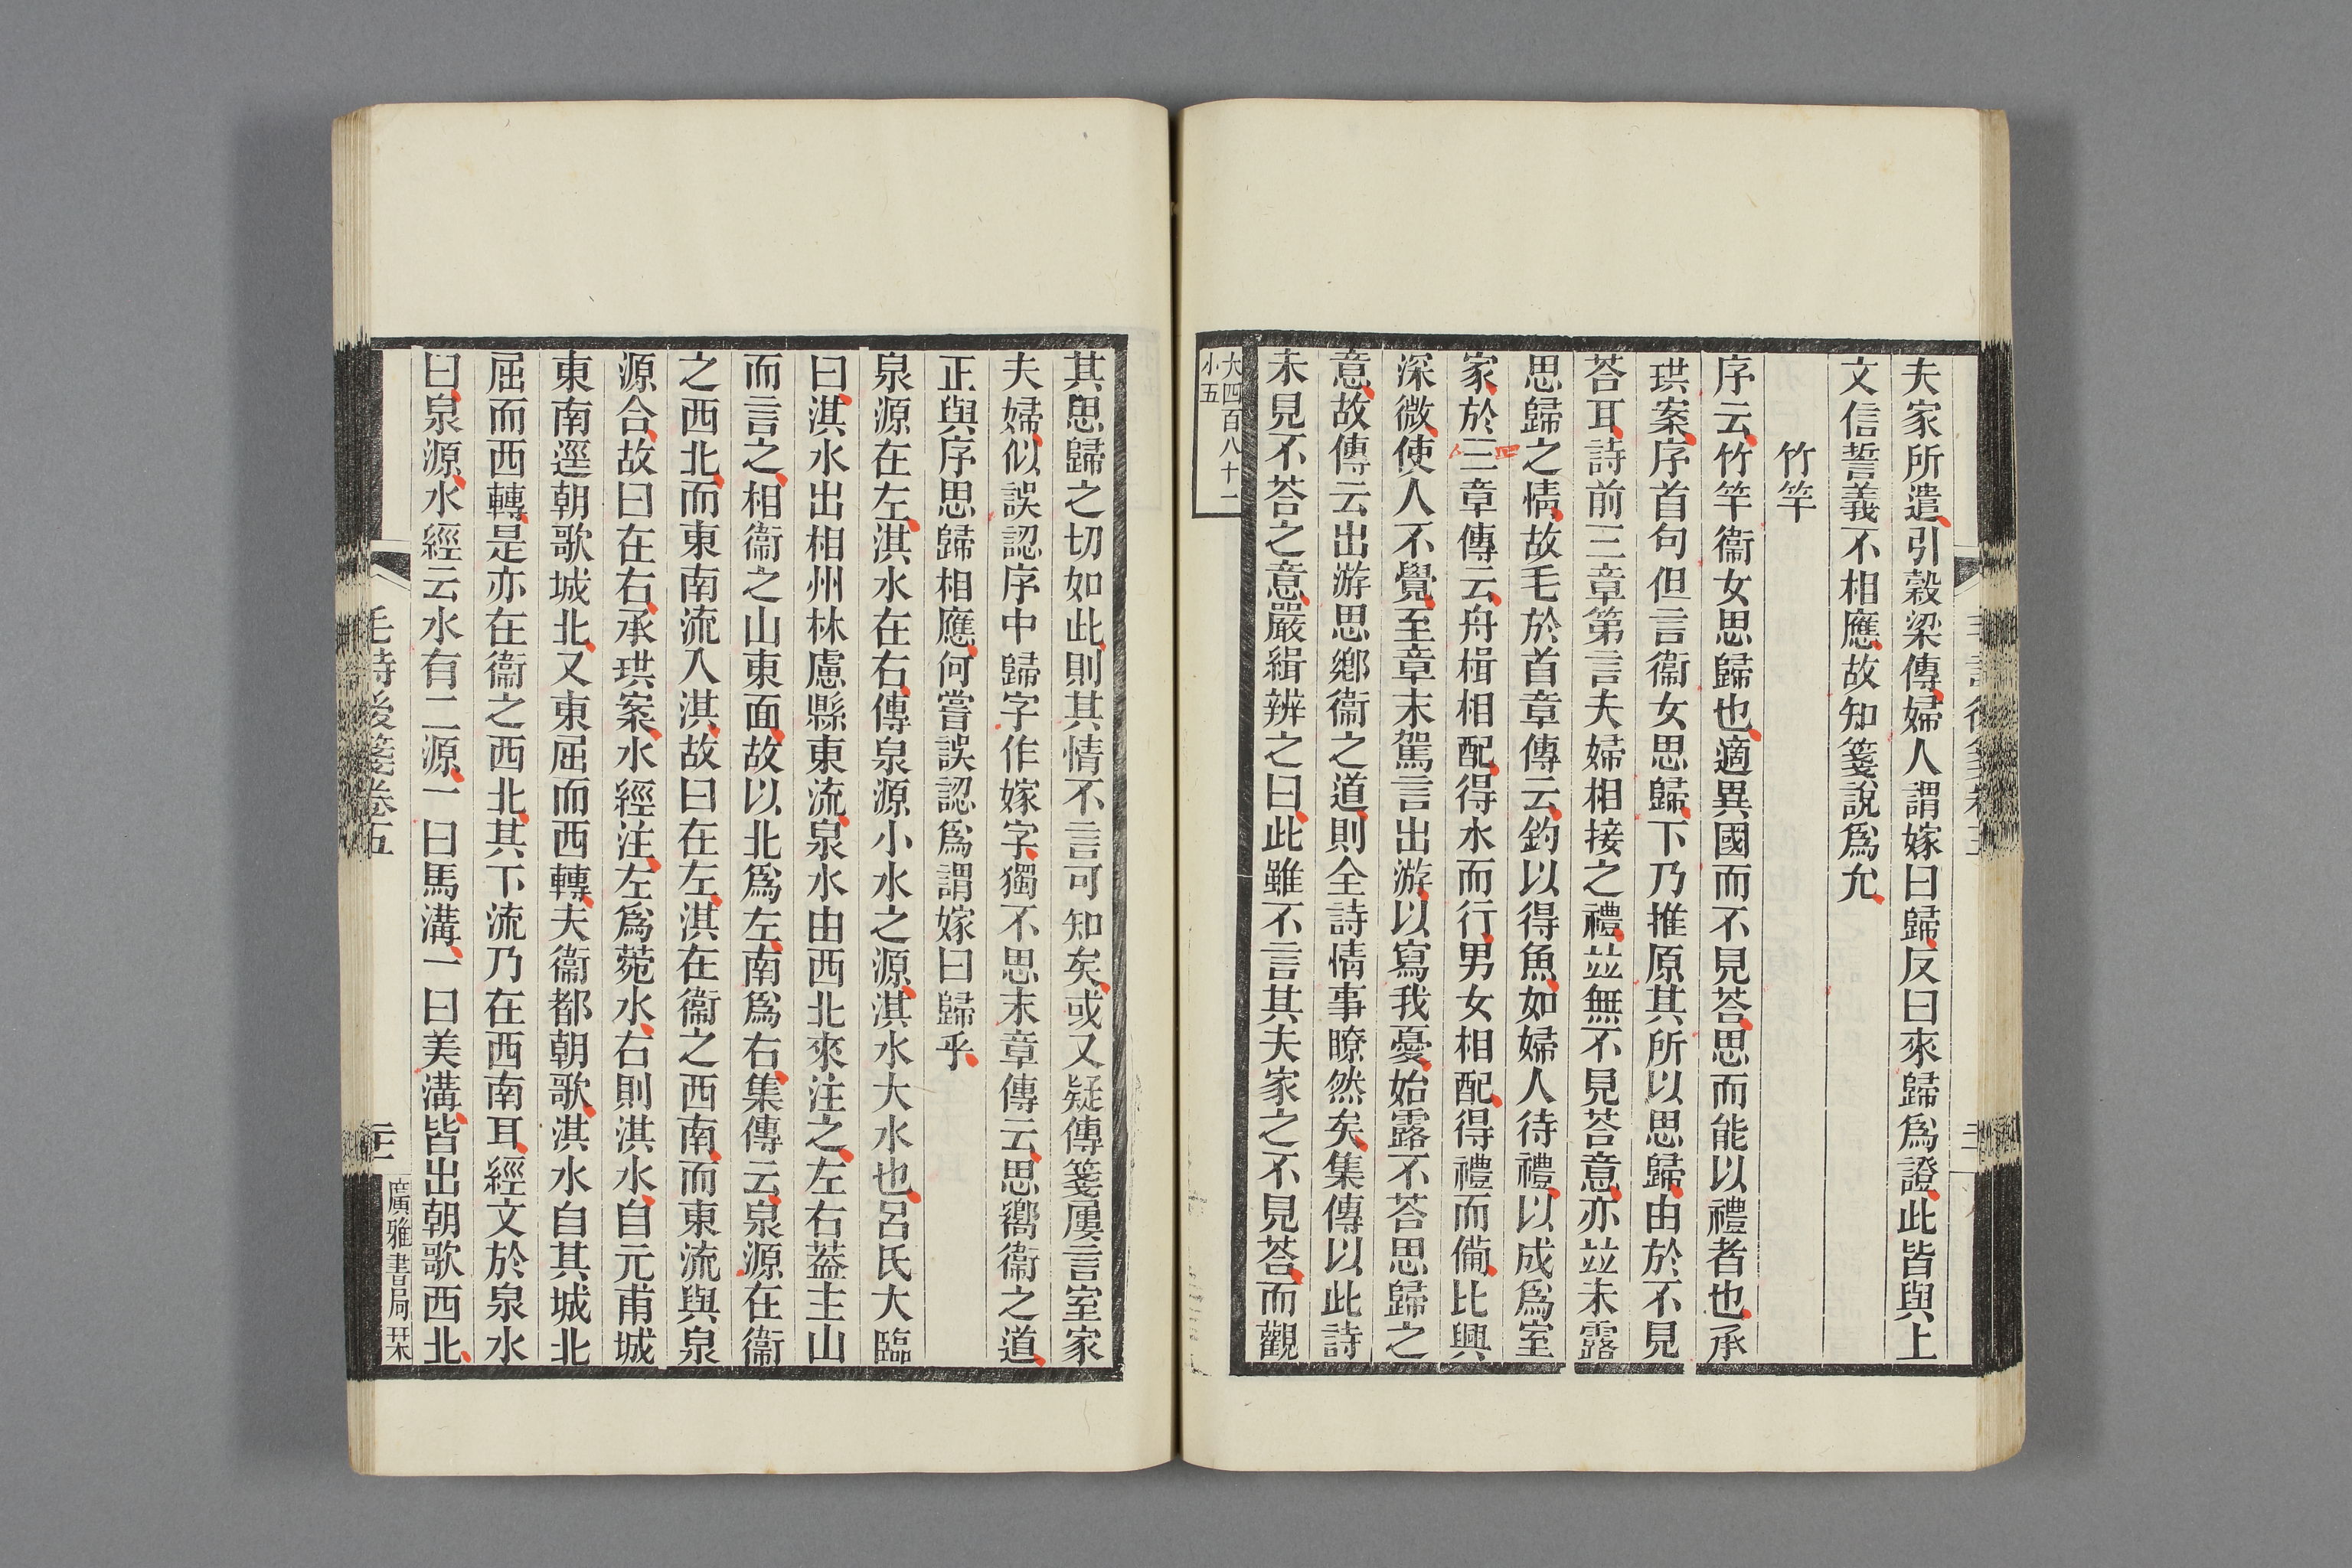 夫家所遣引穀梁傳婦人謂嫁曰歸反曰來歸爲證此皆與上
文信誓義不相應故知箋說爲允
竹竿
序云竹竿衞女思歸也適異國而不見荅思而能以禮者也承
珙案序首句但言衞女思歸下乃推原其所以思歸由於不見
荅耳詩前三章第言夫婦相接之禮並無不見荅意亦並未露
思歸之情故毛於首章傳云釣以得魚如婦人待禮以成爲室
家於三章傳云舟楫相配得水而行男女相配得禮而備比興
四
深微使人不覺至章末駕言出游以寫我憂始露不荅思歸之
意故傳云出游思鄕衞之道則全詩情事瞭然矣集傳以此詩
未見不荅之意嚴緝辨之曰此雖不言其夫家之不見荅而觀
大四百八十一
小五
其思歸之切如此則其情不言可知矣或又疑傳箋屢言室家
夫婦似誤認序中歸字作嫁字獨不思末章傳云思嚮衞之道
正與序思歸相應何嘗誤認爲謂嫁曰歸乎
泉源在左淇水在右傳泉源小水之源淇水大水也呂氏大臨
曰淇水出相州林慮縣東流泉水由西北來注之左右葢主山
而言之相衞之山東面故以北爲左南爲右集傳云泉源在衞
之西北而東南流入淇故曰在左淇在衞之西南而東流與泉
源合故曰在右承珙案水經注左爲菀水右則淇水自元甫城
東南逕朝歌城北又東屈而西轉夫衞都朝歌淇水自其城北
屈而西轉是亦在衞之西北其下流乃在西南耳經文於泉水
曰泉源水經云水有二源一曰馬溝一曰美溝皆出朝歌西北
毛詩後箋卷五
廣雅書局栞